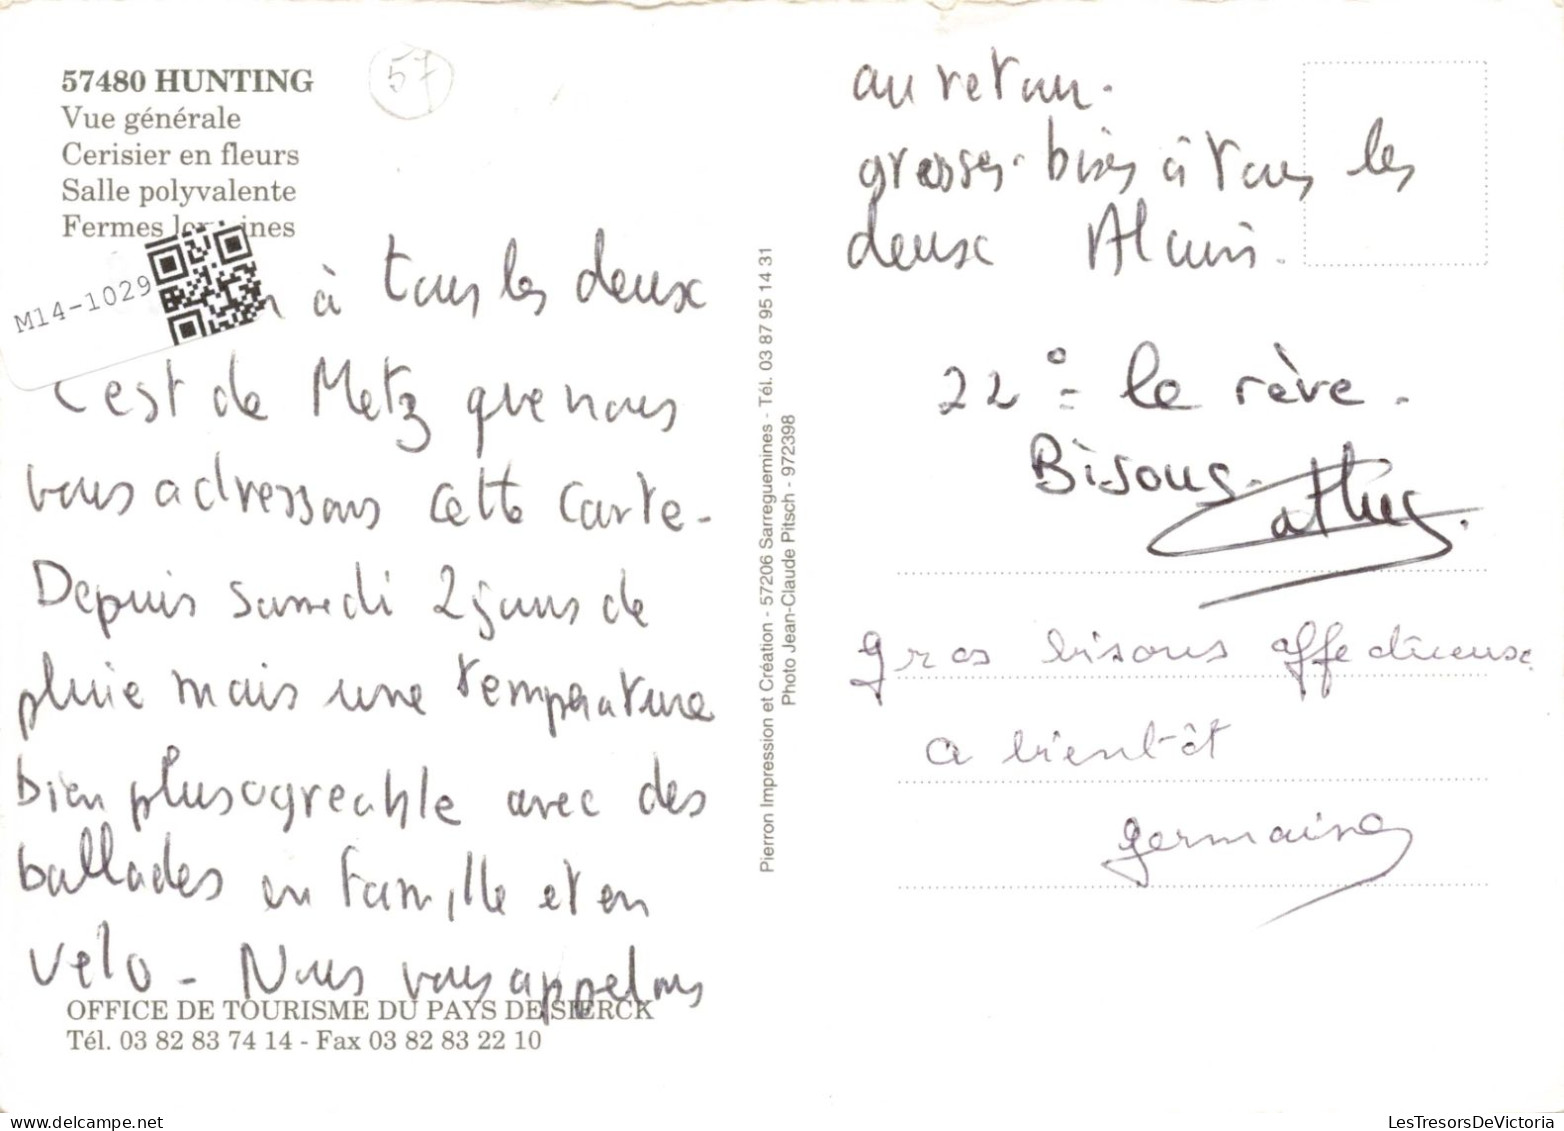 57480 HUNTING
57
Vue générale
Cerisier en fleurs
Salle polyvalente
Fermes
M14-1029
à tous les deux
C'est de Metz que nous
vous adressons cette carte -
Depuis samedi 2 jours de
pluie mais une temperature
bien plus agreable avec des
ballades en famille et en
velo - Nous vous appelons
OFFICE DE TOURISME DU PAYS DE SIERCK
Tél. 03 82 83 74 14 - Fax 03 82 83 22 10
Pierron Impression et Création - 57206 Sarreguemines - Tél. 03 87 95 14 31
Photo Jean-Claude Pitsch - 972398
au retour.
grosses bises à tous les
deux Alain.
22° = le rêve.
Bisous.
Cathy.
gros bisous affectueux
a bientôt
germaine
LesTresorsDeVictoria